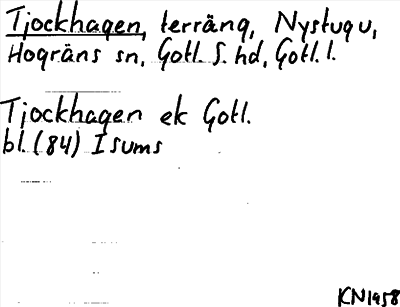 Tjockhagen, terräng, Nystugu,
Hogräns sn, Gotl. S. hd, Gotl. l.
Tjockhagen ek Gotl.
bl. (84) Isums
KN1958